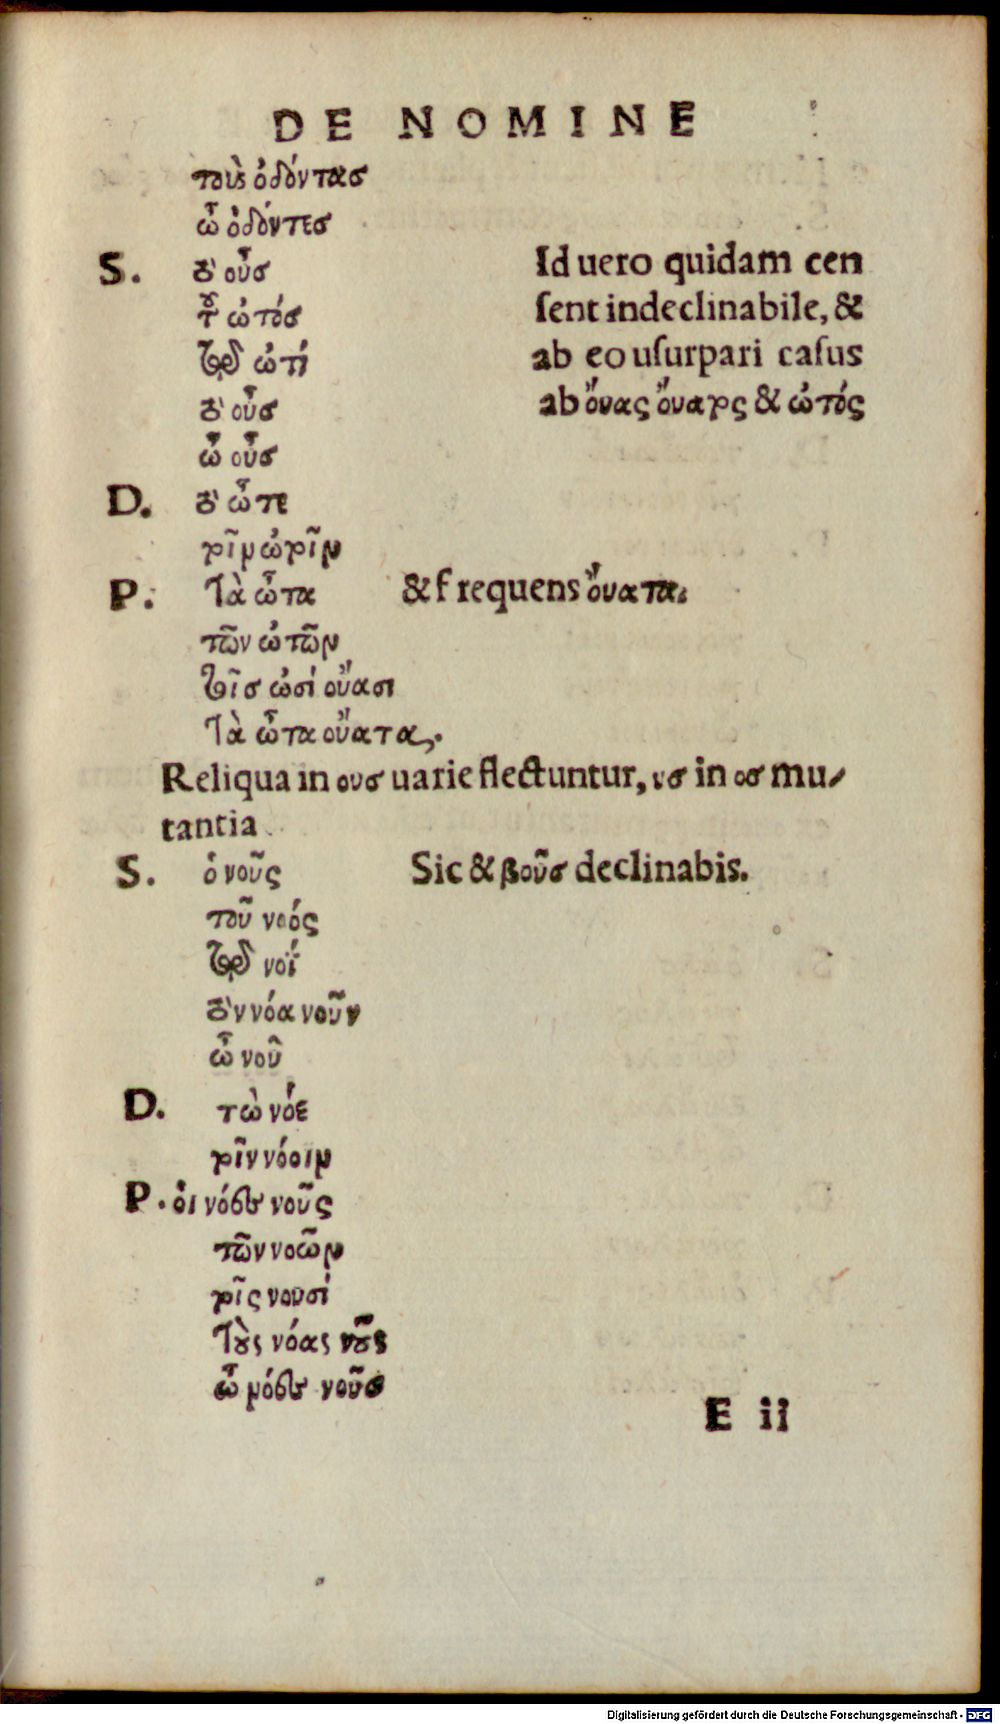 DE NOMINE
τοὺς ὀδόντασ
ὦ ὀδόντεσ
S. τὸ οὖσ Id uero quidam cen
τοῦ ὠτόσ ſent indeclinabile, &
τῷ ὠτί ab eo uſurpari caſus
τὸ οὖσ ab ὄνας ὄνατος & ὠτός
ὦ οὖσ
D. τὸ ὦτε
τοῖν ὠτοῖν
P. Τὰ ὦτα & frequens ὄυατα.
τῶν ὠτῶν
τοῖσ ὠσί οὔασι
Τὰ ὦτα οὔατα,.
Reliqua in ουσ uarie flectuntur, υσ in οσ mu/
tantia
S. ὁ νοῦς Sic & βοῦσ declinabis.
τοῦ νοός
τῷ νοΐ
τὸν νόα νοῦν
ὦ νοῦ
D. τὼ νόε
τοῖν νόοιν
P. οἱ νόες νοῦς
τῶν νοῶν
τοῖς νουσί
Τοὺς νόας νοῦς
ὦ μόες νοῦσ
E ii
Digitalisierung gefördert durch die Deutsche Forschungsgemeinschaft - DFG